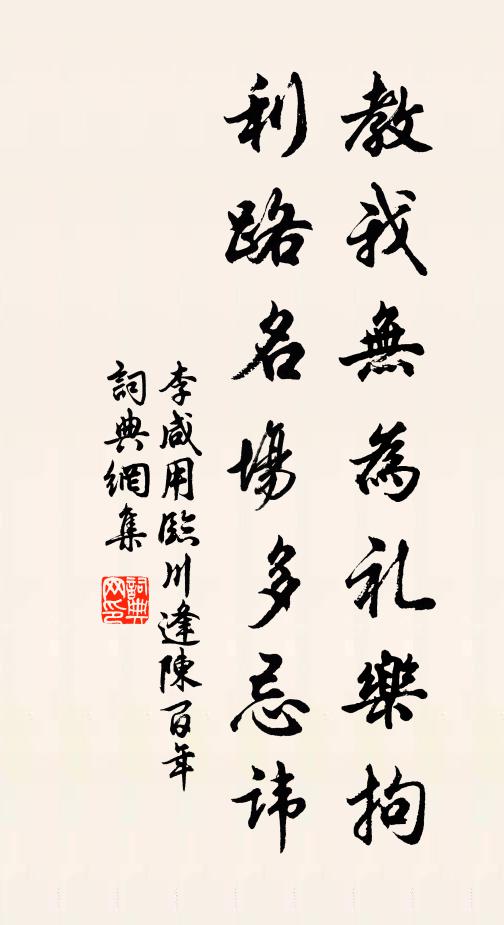 教我無為礼樂拘
利路名場多忌讳
李咸用臨川逢陳百年
詞典網集
詞典网印